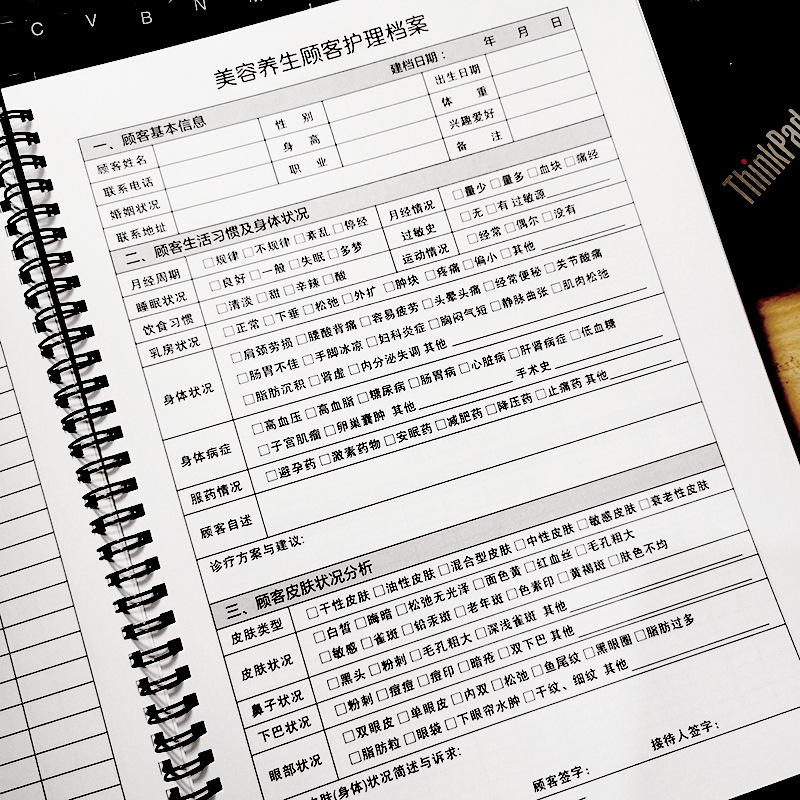 C V B N M
ThinkPad
美容养生顾客护理档案
建档日期： 年 月 日
一、顾客基本信息
顾客姓名 性 别 出生日期
联系电话 身 高 体 重
婚姻状况 职 业 兴趣爱好
联系地址 备 注
二、顾客生活习惯及身体状况
月经周期 □规律 □不规律 □紊乱 □停经 月经情况 □量少 □量多 □血块 □痛经
睡眠状况 □良好 □一般 □失眠 □多梦 过敏史 □无 □有 过敏源
饮食习惯 □清淡 □甜 □辛辣 □酸 运动情况 □经常 □偶尔 □没有
乳房状况 □正常 □下垂 □松弛 □外扩 □肿块 □疼痛 □偏小 □其他
身体状况 □肩颈劳损 □腰酸背痛 □容易疲劳 □头晕头痛 □经常便秘 □关节酸痛
□肠胃不佳 □手脚冰凉 □妇科炎症 □胸闷气短 □静脉曲张 □肌肉松弛
□脂肪沉积 □肾虚 □内分泌失调 其他
身体病症 □高血压 □高血脂 □糖尿病 □肠胃病 □心脏病 □肝肾病症 □低血糖
□子宫肌瘤 □卵巢囊肿 其他 手术史
服药情况 □避孕药 □激素药物 □安眠药 □减肥药 □降压药 □止痛药 其他
顾客自述
诊疗方案与建议:
三、顾客皮肤状况分析
皮肤类型 □干性皮肤 □油性皮肤 □混合型皮肤 □中性皮肤 □敏感皮肤 □衰老性皮肤
皮肤状况 □白皙 □晦暗 □松弛无光泽 □面色黄 □红血丝 □毛孔粗大
□敏感 □雀斑 □铅汞斑 □老年斑 □色素印 □黄褐斑 □肤色不均
鼻子状况 □黑头 □粉刺 □毛孔粗大 □深浅雀斑 其他
下巴状况 □粉刺 □痘痘 □痘印 □暗疮 □双下巴 其他
眼部状况 □双眼皮 □单眼皮 □内双 □松弛 □鱼尾纹 □黑眼圈 □脂肪过多
□脂肪粒 □眼袋 □下眼帘水肿 □干纹、细纹 其他
肤(身体)状况简述与诉求:
顾客签字: 接待人签字: